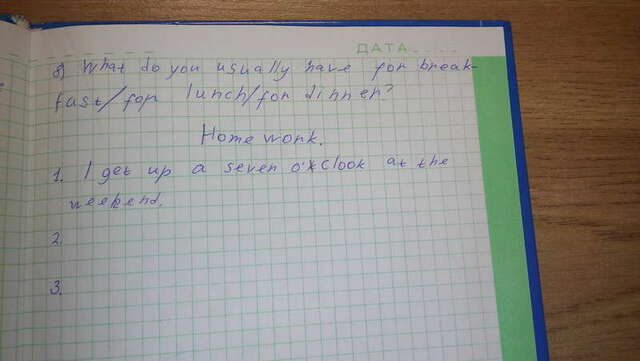 ДАТА
8) What do you usually have for break-
fast/for lunch/for dinner?
Home work.
1. I get up a seven o'clook at the
weekend.
2.
3.